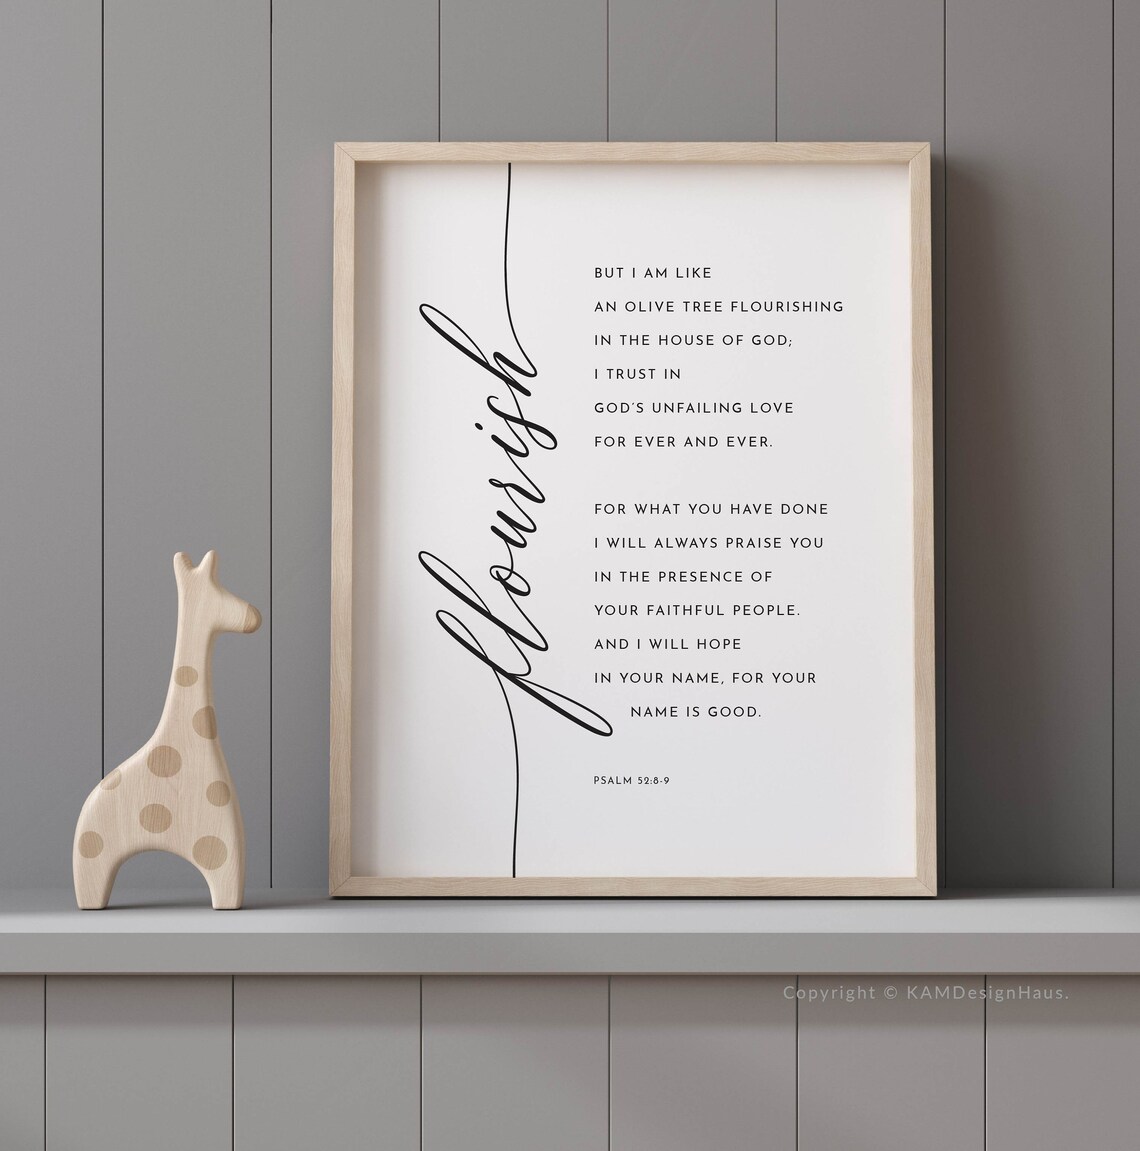 flourish
BUT I AM LIKE
AN OLIVE TREE FLOURISHING
IN THE HOUSE OF GOD;
I TRUST IN
GOD'S UNFAILING LOVE
FOR EVER AND EVER.
FOR WHAT YOU HAVE DONE
I WILL ALWAYS PRAISE YOU
IN THE PRESENCE OF
YOUR FAITHFUL PEOPLE.
AND I WILL HOPE
IN YOUR NAME, FOR YOUR
NAME IS GOOD.
PSALM 52:8-9
Copyright © KAMDesignHaus.